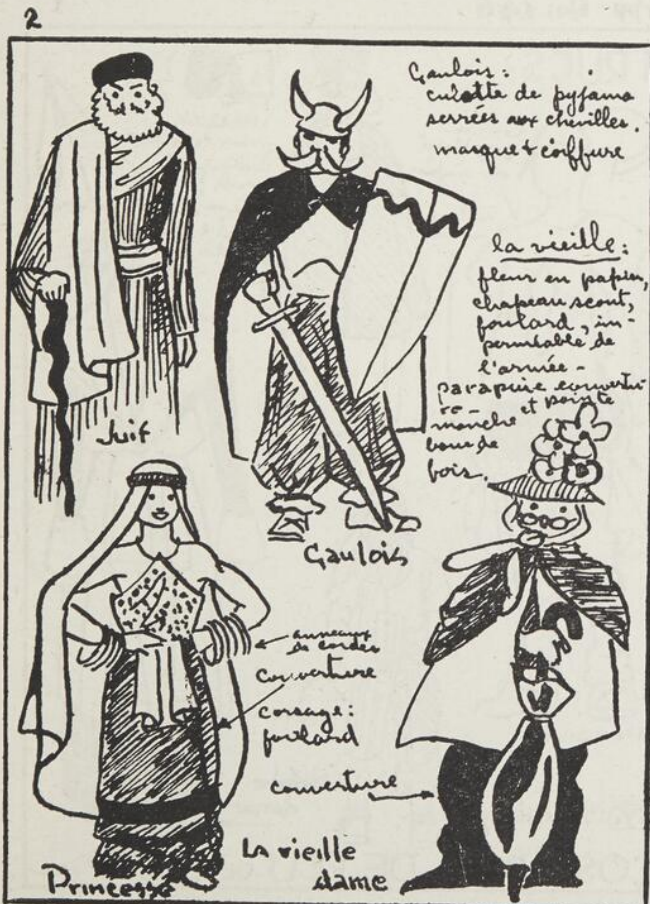 2
Gaulois:
culotte de pyjama
serrées aux chevilles.
masque & coiffure
la vieille:
fleur en papier,
chapeau scout,
foulard, im-
perméable de
l'armée -
parapluie couvertu-
re - et pointe
manche
bout de
bois.
Juif
Gaulois
anneaux
de cordes
couverture
corsage:
foulard
couverture
La vieille
dame
Princesse